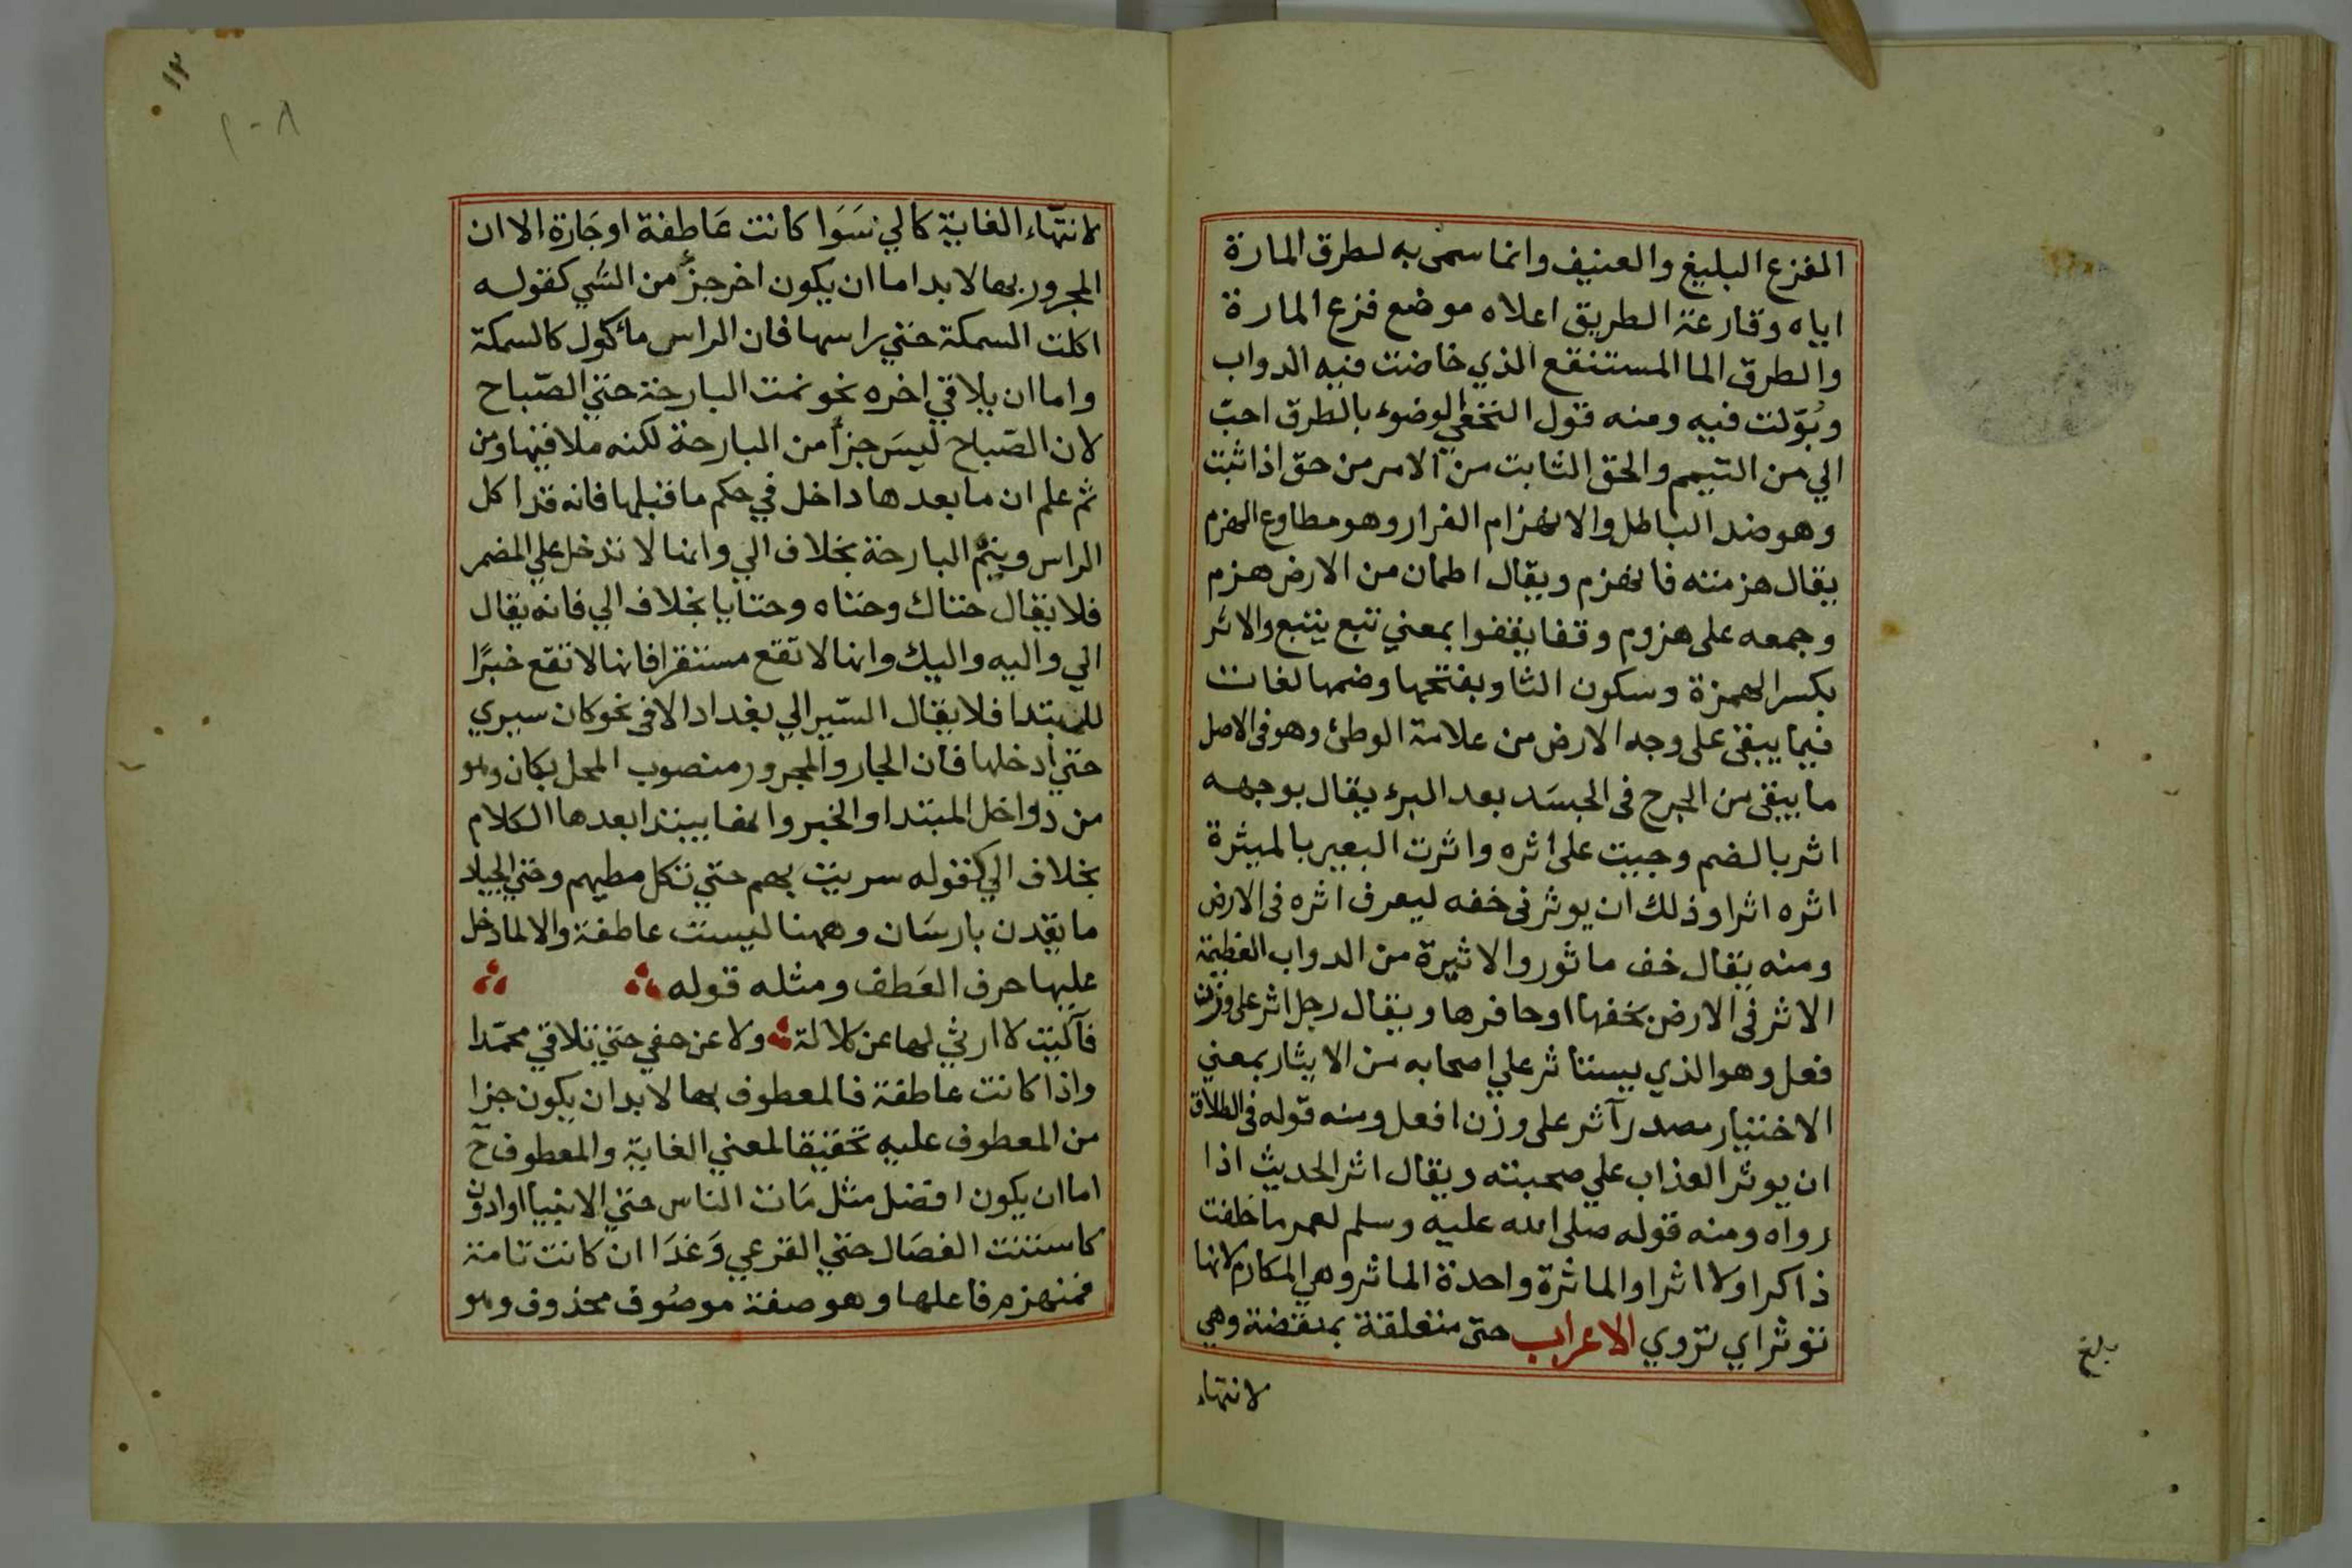 المفزع البليغ والعنيف وانما سمى به لطرق المارة
اياه وقارعة الطريق اعلاه موضع فزع المارة
والطرق الما المستنقع الذي خاضت فيه الدواب
وبُوّلت فيه ومنه قول النخعي الوضوء بالطرق احبّ
الي من التيمم والحق الثابت من الامر من حق اذا ثبت
وهو ضد الباطل والانهزام الفرار وهو مطاوع الهزم
يقال هزمته فانهزم ويقال اطمان من الارض هزم
وجمعه على هزوم وقفا يقفوا بمعني تبع يتبع والاثر
بكسر الهمزة وسكون الثا وبفتحها وضمها لغات
فيما يبقى على وجه الارض من علامة الوطئ وهو فى الاصل
ما يبقى من الجرح فى الجسَد بعد البرء يقال بوجهه
اثر بالضم وجيت على اثره واثرت البعير بالميثرة
اثره اثرا وذلك ان يوثر فى خفه ليعرف اثره فى الارض
ومنه يقال خف ماثور والاثيرة من الدواب العظيمة
الاثر فى الارض بخفها او حافرها ويقال رجل اثر على وزن
فعل وهو الذي يستاثر علي اصحابه من الايثار بمعني
الاختيار مصدر آثر على وزن افعل ومنه قوله فى الطلاق
ان يوثر العذاب علي صحبته ويقال اثر الحديث اذا
رواه ومنه قوله صلى الله عليه وسلم لعمر ما خلفت
ذاكرا ولا اثرا والماثرة واحدة الماثر وهي المكارم لانها
توثر اي تروي الاعراب حتى متعلقة بمنقضة وهي
لانتهاء
بلغ
١٢
٨-١
لانتهاء الغاية كالي سَوَا كانت عَاطفة او جَارة الا ان
المجرور بها لا بد اما ان يكون اخر جزءٍ من الشي كقوله
اكلت السمكة حتي راسها فان الراس ماكول كالسمكة
واما ان يلاقي اخره نحو نمت البارحة حتي الصّباح
لان الصّباح ليسَ جزأ من البارحة لكنه ملاقيها ومن
ثم علم ان ما بعدها داخل في حكم ما قبلها فانه قد اكل
الراس ويتمّ البارحة بخلاف الي وانها لا تدخل علي المضمر
فلا يقال حتاك وحتاه وحتايا بخلاف الي فانه يقال
الي واليه واليك وانها لا تقع مستقرا فانها لا تقع خبرًا
للمبتدا فلا يقال السّير الي بغداد الا فى نحو كان سيري
حتي ادخلها فان الجار والمجرور منصوب المحل بكان وهو
من دواخل المبتدا والخبر وانها يبتدا بعدها الكلام
بخلاف الي كقوله سريت بهم حتي تكل مطيهم وحتي الجياد
ما يقدن بارسَان وههنا ليست عاطفة والا لما دخل
عليها حرف العَطف ومثله قوله
فآليت لا ارثي لها عن كلالة ولا عن حفي حتي تلاقي محمّدا
واذا كانت عاطفة فالمعطوف بها لا بد ان يكون جزا
من المعطوف عليه تحقيقا لمعني الغاية والمعطوف ح
اما ان يكون افضل مثل مَات الناس حتي الانبيا او ادون
كاستنت الفصَال حتي القرعي وَغدَا ان كانت تامة
فمنهزم فاعلها وهو صفة موصُوف محذوف وهو